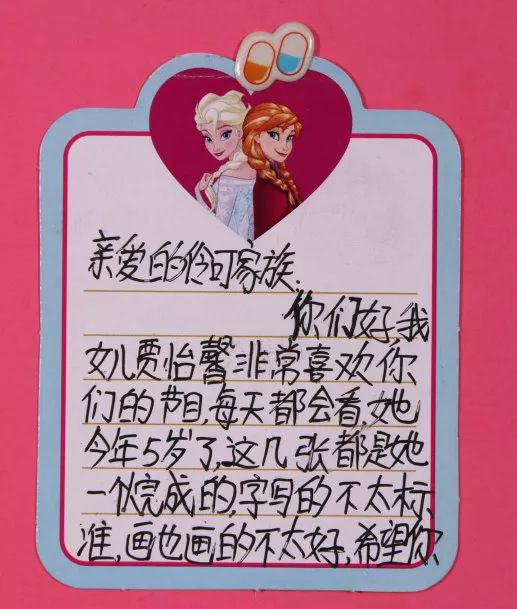 亲爱的伶可家族.
你们好,我
女儿贾怡馨非常喜欢你
们的节目,每天都会看,她
今年5岁了,这几张都是她
一个人完成的,字写的不太标
准,画也画的不太好,希望你